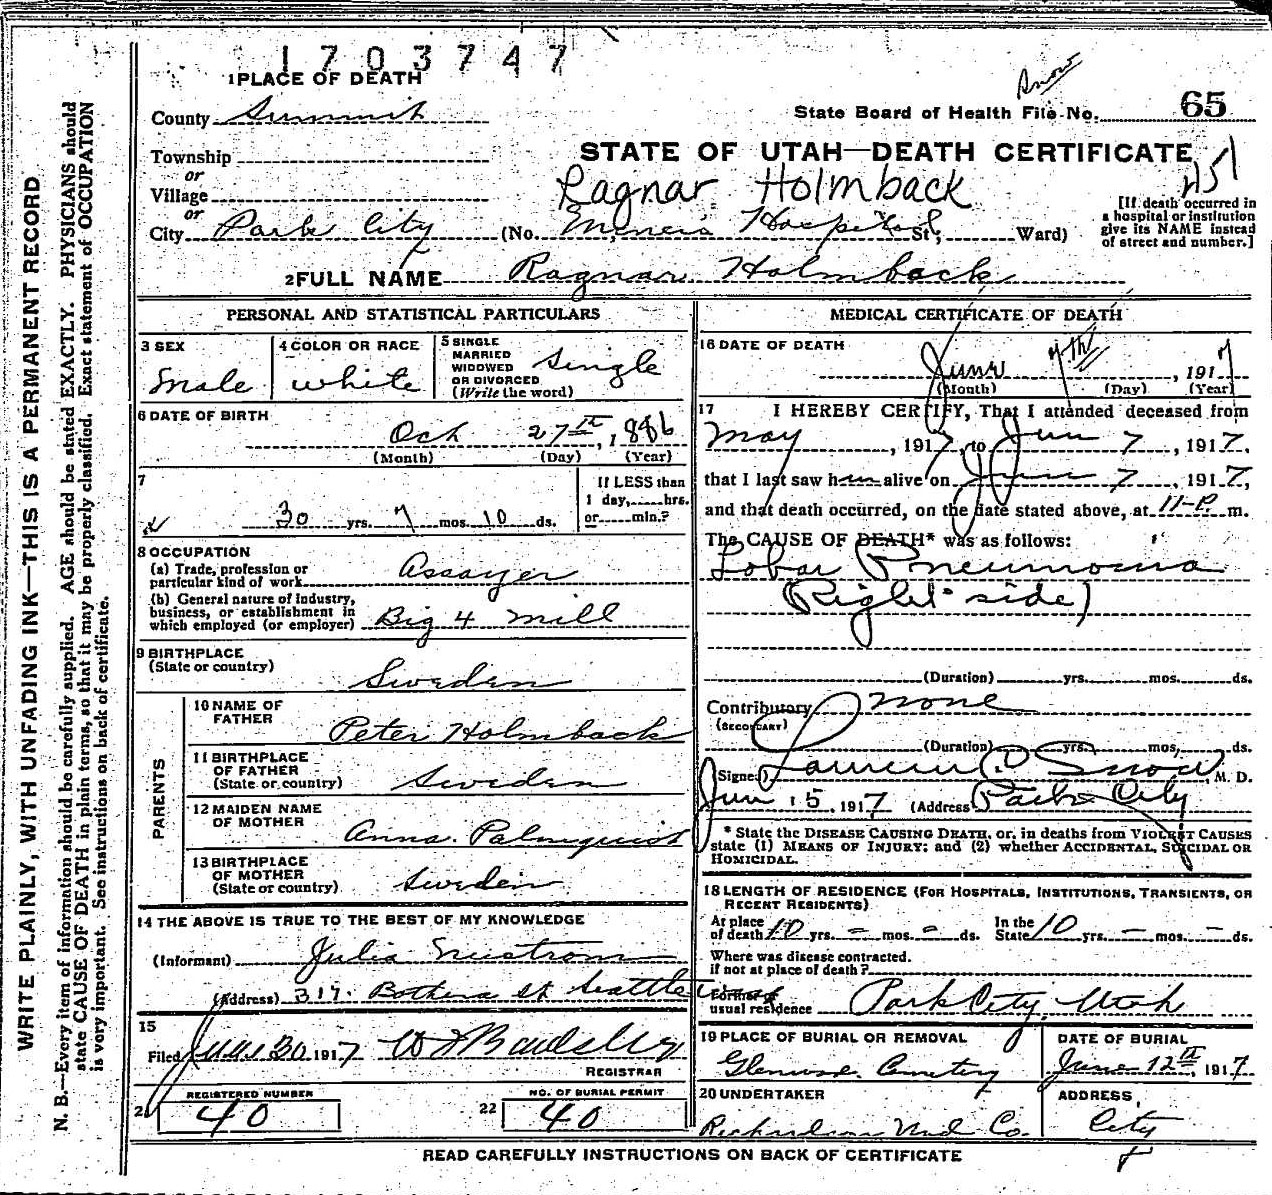 1703747
1 PLACE OF DEATH
Snow
County Summit
State Board of Health File No. 65
Township
or
STATE OF UTAH—DEATH CERTIFICATE
Village
Ragnar Holmback
451
or
City Park City (No. Miners Hospital St; Ward)
[If death occurred in
a hospital or institution
give its NAME instead
of street and number.]
2 FULL NAME Ragnar Holmback
PERSONAL AND STATISTICAL PARTICULARS
3 SEX
male
4 COLOR OR RACE
white
5 SINGLE
MARRIED
WIDOWED
OR DIVORCED
(Write the word)
Single
6 DATE OF BIRTH
Oct 27th, 1886
(Month) (Day) (Year)
7
30 yrs. 7 mos. 10 ds.
If LESS than
1 day, hrs.
or min.?
8 OCCUPATION
(a) Trade, profession or
particular kind of work Assayer
(b) General nature of industry,
business, or establishment in
which employed (or employer) Big 4 Mill
9 BIRTHPLACE
(State or country)
Sweden
PARENTS
10 NAME OF
FATHER
Peter Holmback
11 BIRTHPLACE
OF FATHER
(State or country)
Sweden
12 MAIDEN NAME
OF MOTHER
Anna Palmquist
13 BIRTHPLACE
OF MOTHER
(State or country)
Sweden
14 THE ABOVE IS TRUE TO THE BEST OF MY KNOWLEDGE
(Informant) Julia
(Address) 317 St Seattle
15
Filed 30 1917
REGISTRAR
REGISTERED NUMBER
21 40
NO. OF BURIAL PERMIT
22 40
MEDICAL CERTIFICATE OF DEATH
16 DATE OF DEATH
June 7th, 1917
(Month) (Day) (Year)
17 I HEREBY CERTIFY, That I attended deceased from
May, 1917, to Jun 7, 1917,
that I last saw him alive on Jun 7, 1917,
and that death occurred, on the date stated above, at 11-P. m.
The CAUSE OF DEATH* was as follows:
Lobar Pneumonia
(Right side)
(Duration) yrs. mos. ds.
Contributory none
(SECONDARY)
(Duration) yrs. mos. ds.
(Signed) Snow, M. D.
Jun 15, 1917 (Address) Park City
* State the DISEASE CAUSING DEATH, or, in deaths from VIOLENT CAUSES
state (1) MEANS OF INJURY; and (2) whether ACCIDENTAL, SUICIDAL OR
HOMICIDAL.
18 LENGTH OF RESIDENCE (FOR HOSPITALS, INSTITUTIONS, TRANSIENTS, OR
RECENT RESIDENTS)
At place
of death 10 yrs. – mos. – ds.
In the
State 10 yrs. – mos. – ds.
Where was disease contracted,
if not at place of death?
Former or
usual residence Park City, Utah
19 PLACE OF BURIAL OR REMOVAL
Glenwood Cemetery
DATE OF BURIAL
June 12th, 1917
20 UNDERTAKER
Richardson Und Co.
ADDRESS
City
READ CAREFULLY INSTRUCTIONS ON BACK OF CERTIFICATE
WRITE PLAINLY, WITH UNFADING INK—THIS IS A PERMANENT RECORD
N. B.—Every item of information should be carefully supplied. AGE should be stated EXACTLY. PHYSICIANS should
state CAUSE OF DEATH in plain terms, so that it may be properly classified. Exact statement of OCCUPATION
is very important. See instructions on back of certificate.